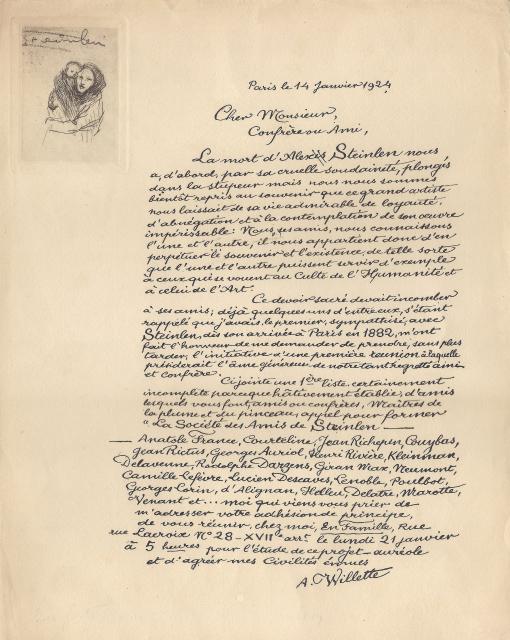 Steinlen
Paris le 14 Janvier 1924
Cher Monsieur,
Confrère ou Ami,
La mort d'Alexis Steinlen nous
a, d'abord, par sa cruelle soudaineté, plongés
dans la stupeur mais nous nous sommes
bientôt repris au souvenir que ce grand artiste
nous laissait de sa vie admirable de loyauté,
d'abnégation et à la contemplation de son œuvre
impérissable: Nous, ses amis, nous connaissons
l'une et l'autre, il nous appartient donc d'en
perpétuer le souvenir et l'existence, de telle sorte
que l'une et l'autre puissent servir d'exemple
à ceux qui se vouent au Culte de l'Humanité et
à celui de l'Art.
Ce devoir sacré devait incomber
à ses amis; déjà quelques uns d'entre eux, s'étant
rappelé que j'avais, le premier, sympathisé, avec
Steinlen, dès son arrivée à Paris en 1882, m'ont
fait l'honneur de me demander de prendre, sans plus
tarder, l'initiative d'une première réunion à laquelle
présiderait l'âme généreuse de notre tant regretté ami
et confrère.
Ci jointe une 1ère liste, certainement
incomplète parce que hâtivement établie, d'amis
lesquels vous font, amis ou confrères, Maîtres de
la plume et du pinceau, appel pour former
"La Société des Amis de Steinlen —
— Anatole France, Courteline, Jean Richepin, Couybas,
Jean Rictus, Georges Auriol, Henri Rivière, Kleinman,
Delavenne, Rodolphe Darzens, Giran Max, Neumont,
Camille Lefèvre, Lucien Descaves, Lenoble, Poulbot,
Georges Lorin, d'Alignan, Helleu, Delatre, Marotte,
Venant et... moi qui viens vous prier de
m'adresser votre adhésion de principe,
de vous réunir, chez moi, En Famille, Rue
rue Lacroix N° 28 - XVIIe arrt. le lundi 21 janvier
à 5 heures pour l'étude de ce projet - auréole
et d'agréer mes Civilités émues
A. Willette